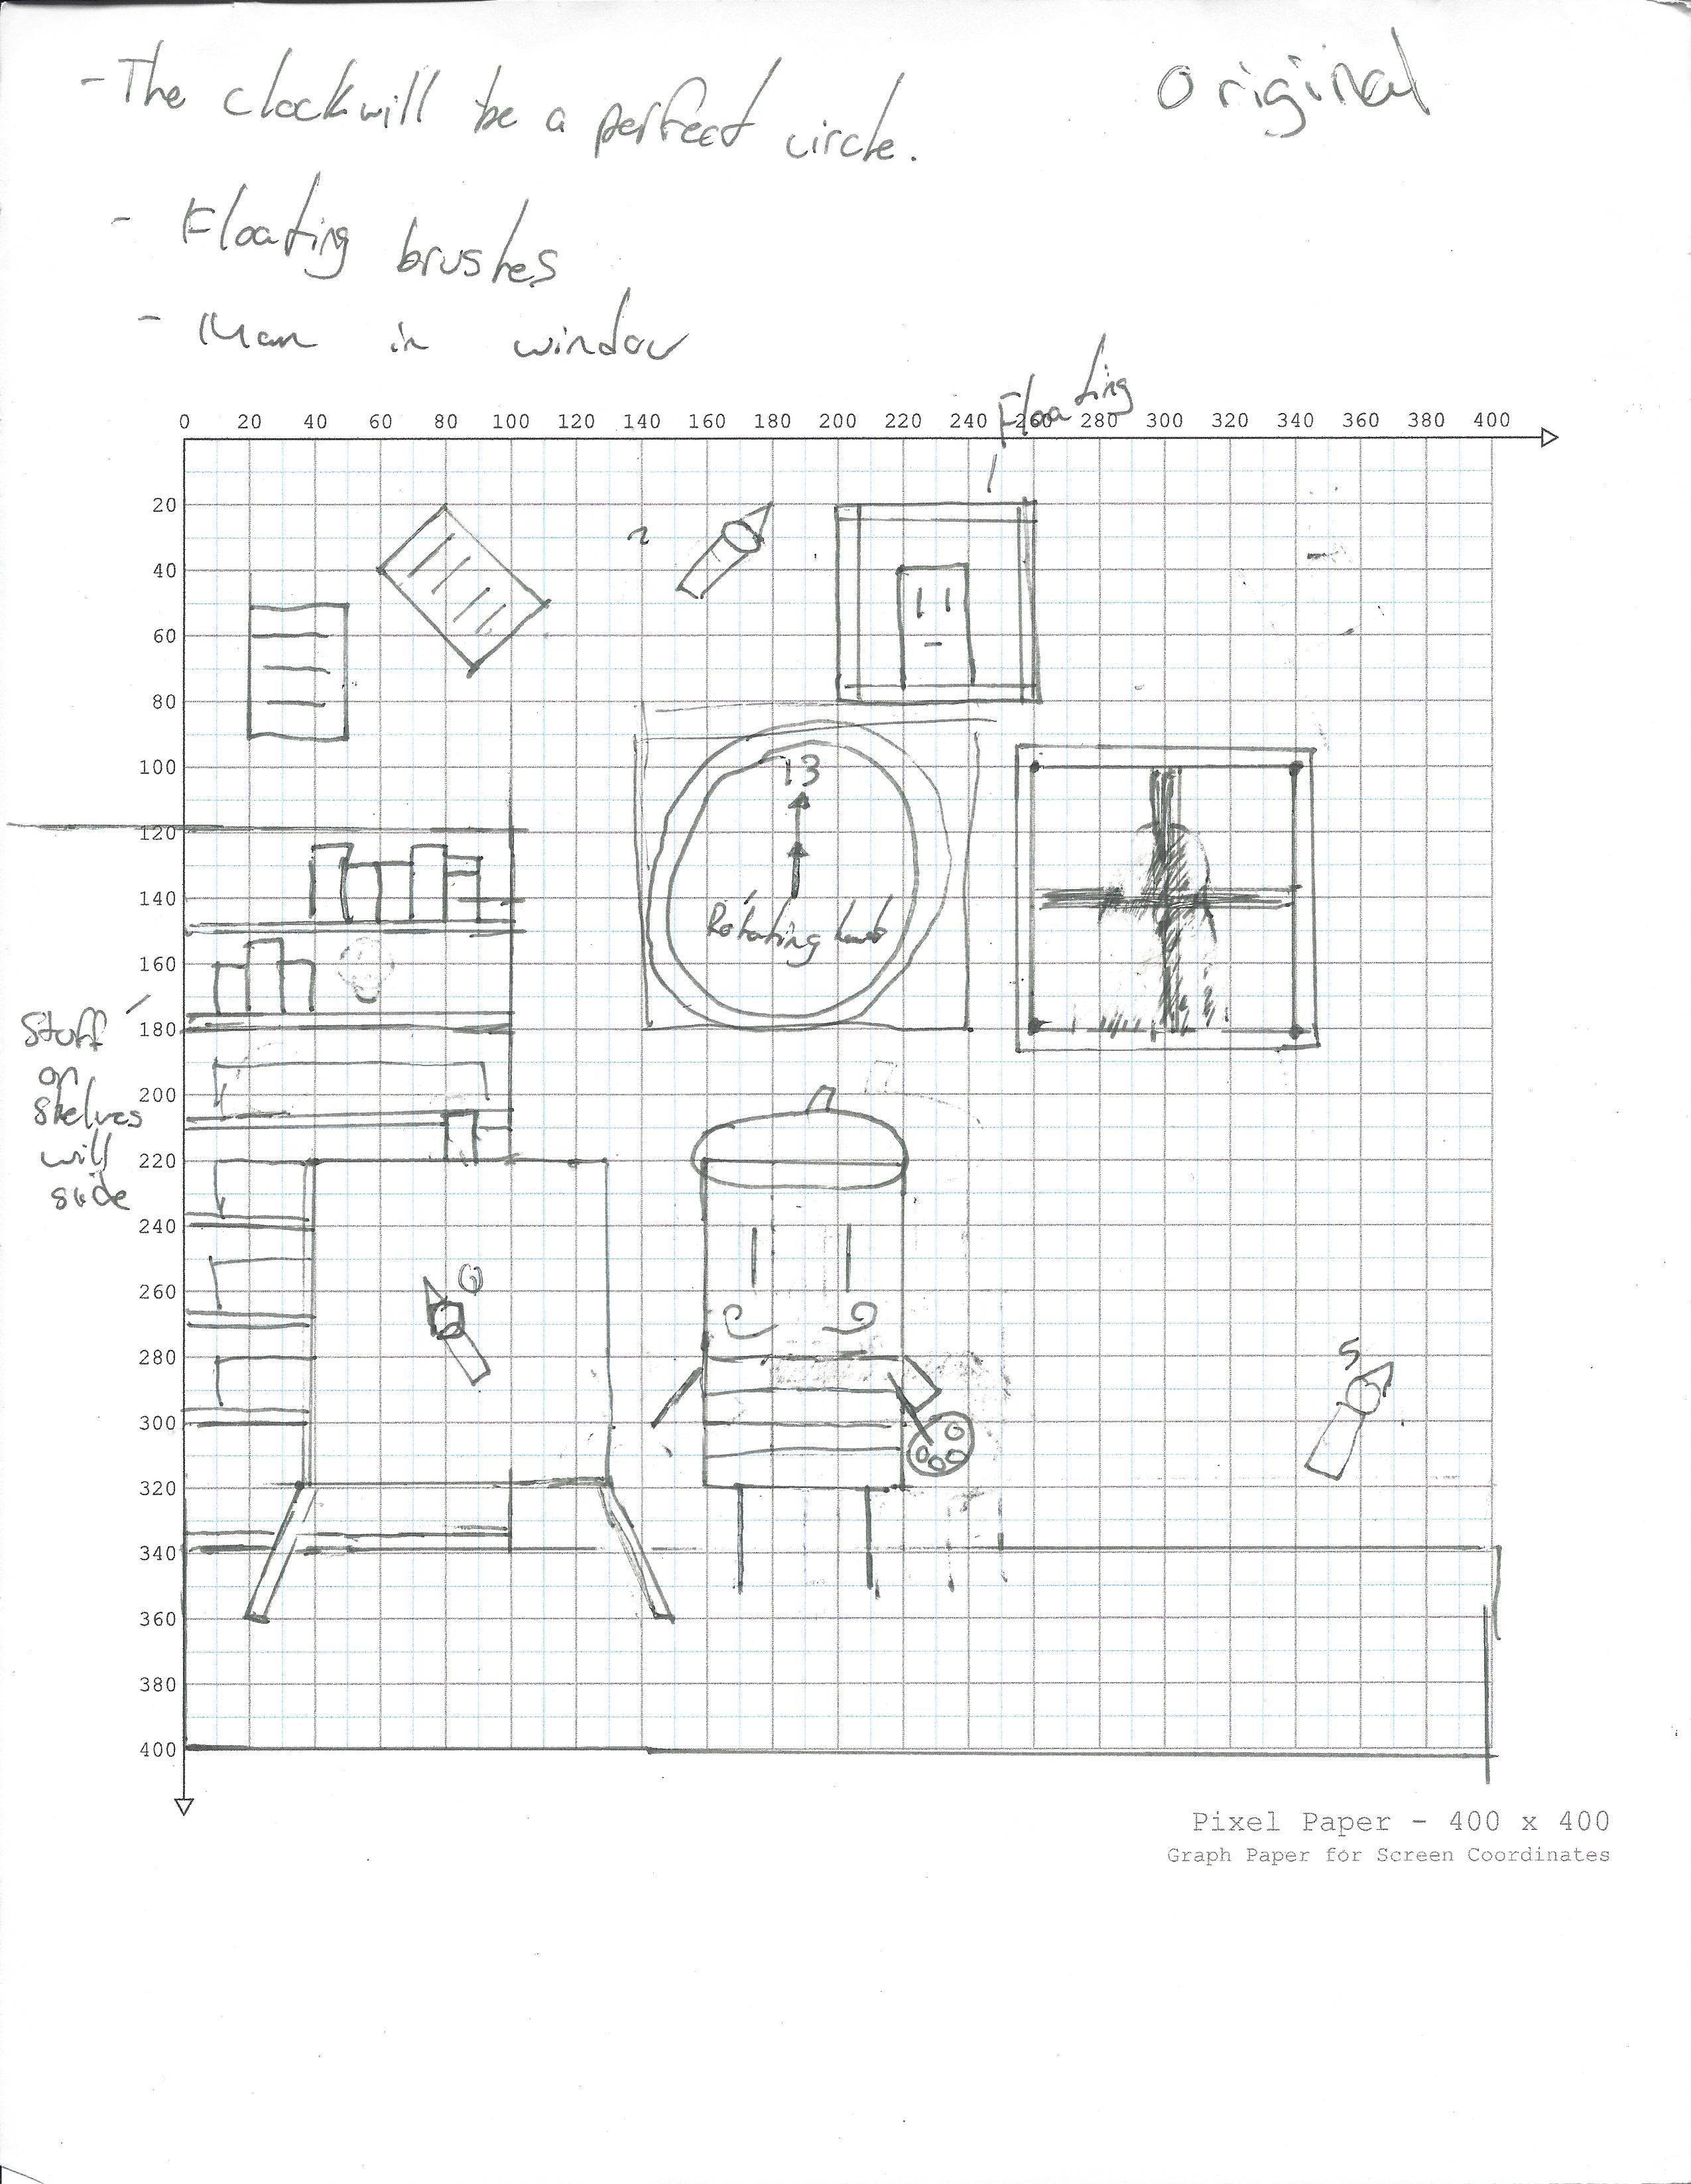 - The clock will be a perfect circle.
Original
- Floating brushes
- Man in window
Floating
0 20 40 60 80 100 120 140 160 180 200 220 240 260 280 300 320 340 360 380 400
20
40
60
80
100
120
140
160
180
200
220
240
260
280
300
320
340
360
380
400
2
13
Rotating
Stuff
on
shelves
will
0
5
Pixel Paper - 400 x 400
Graph Paper for Screen Coordinates